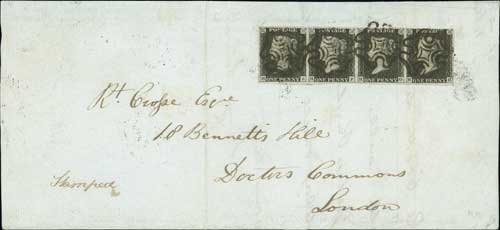 POSTAGE POSTAGE POSTAGE POSTAGE
ONE PENNY. ONE PENNY. ONE PENNY. ONE PENNY.
Rt. Crosse Esqre
18 Bennetts Hill
Doctors Commons
London
Stamped